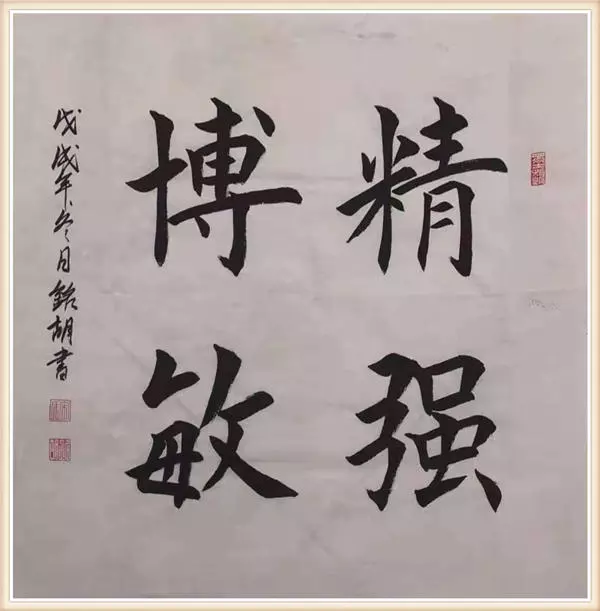 精强
博敏
戊戌年冬月銘胡書